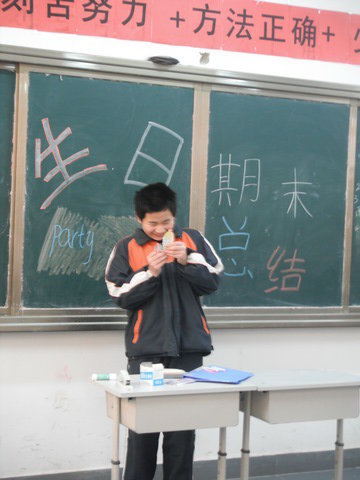 刻苦努力 +方法正确+
生日
party
期末
总结